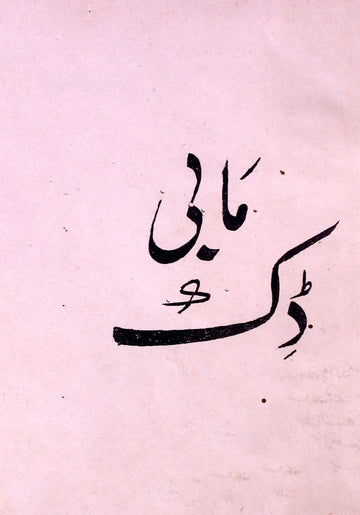 مَابی
ڈِک